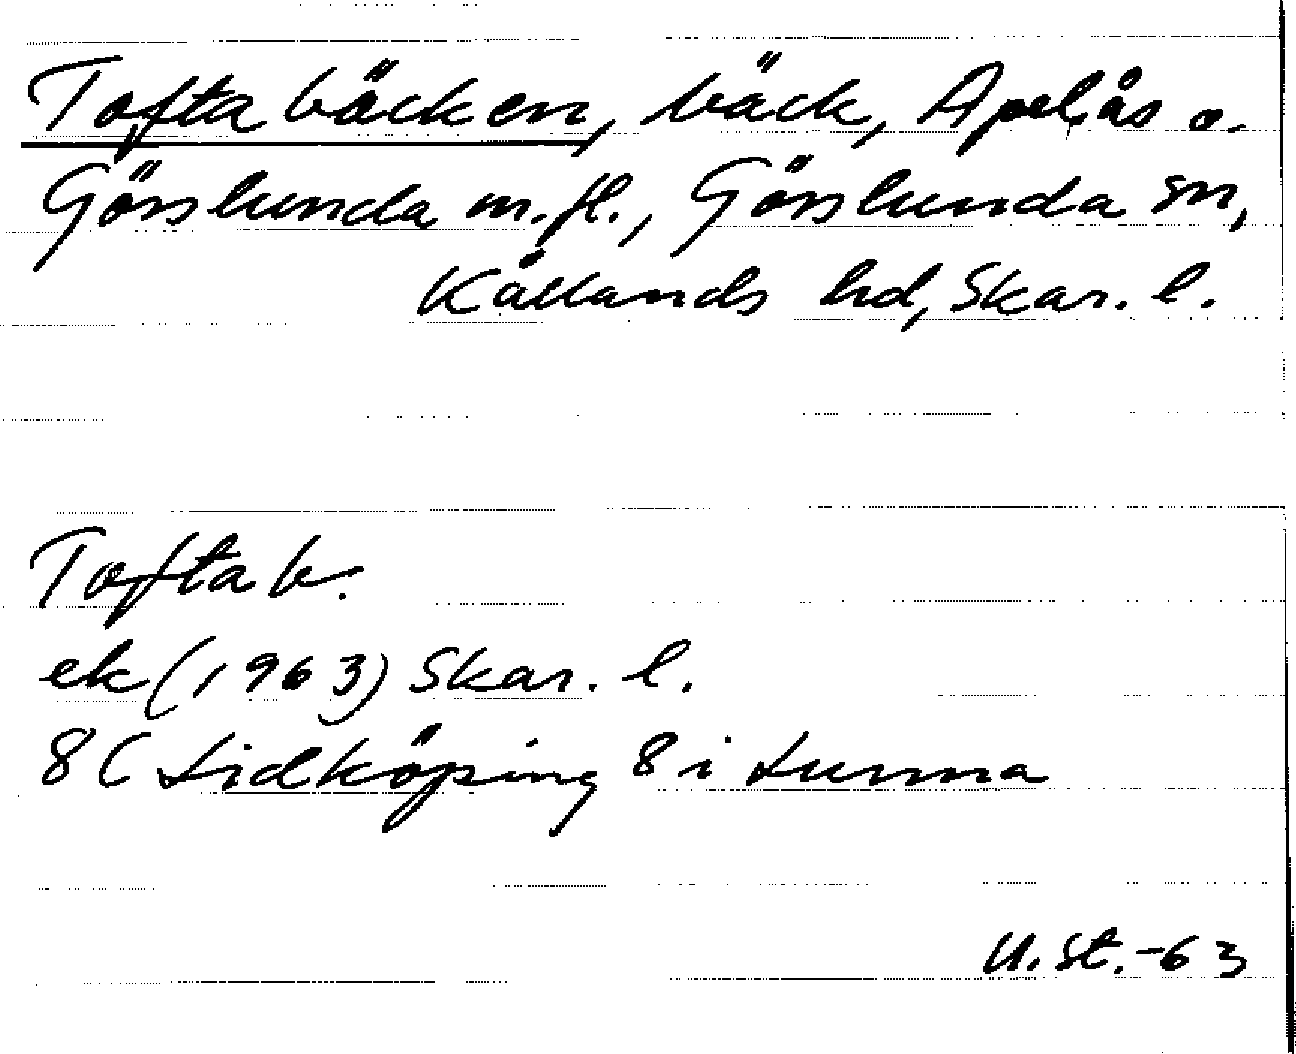 Toftabäcken, bäck, Apelås o.
Görslunda m.fl., Görslunda sn,
Kållands hd, Skar. l.
Tofta b.
ek (1963) Skar. l.
8C Lidköping 8 i Lunna
U.St.-63